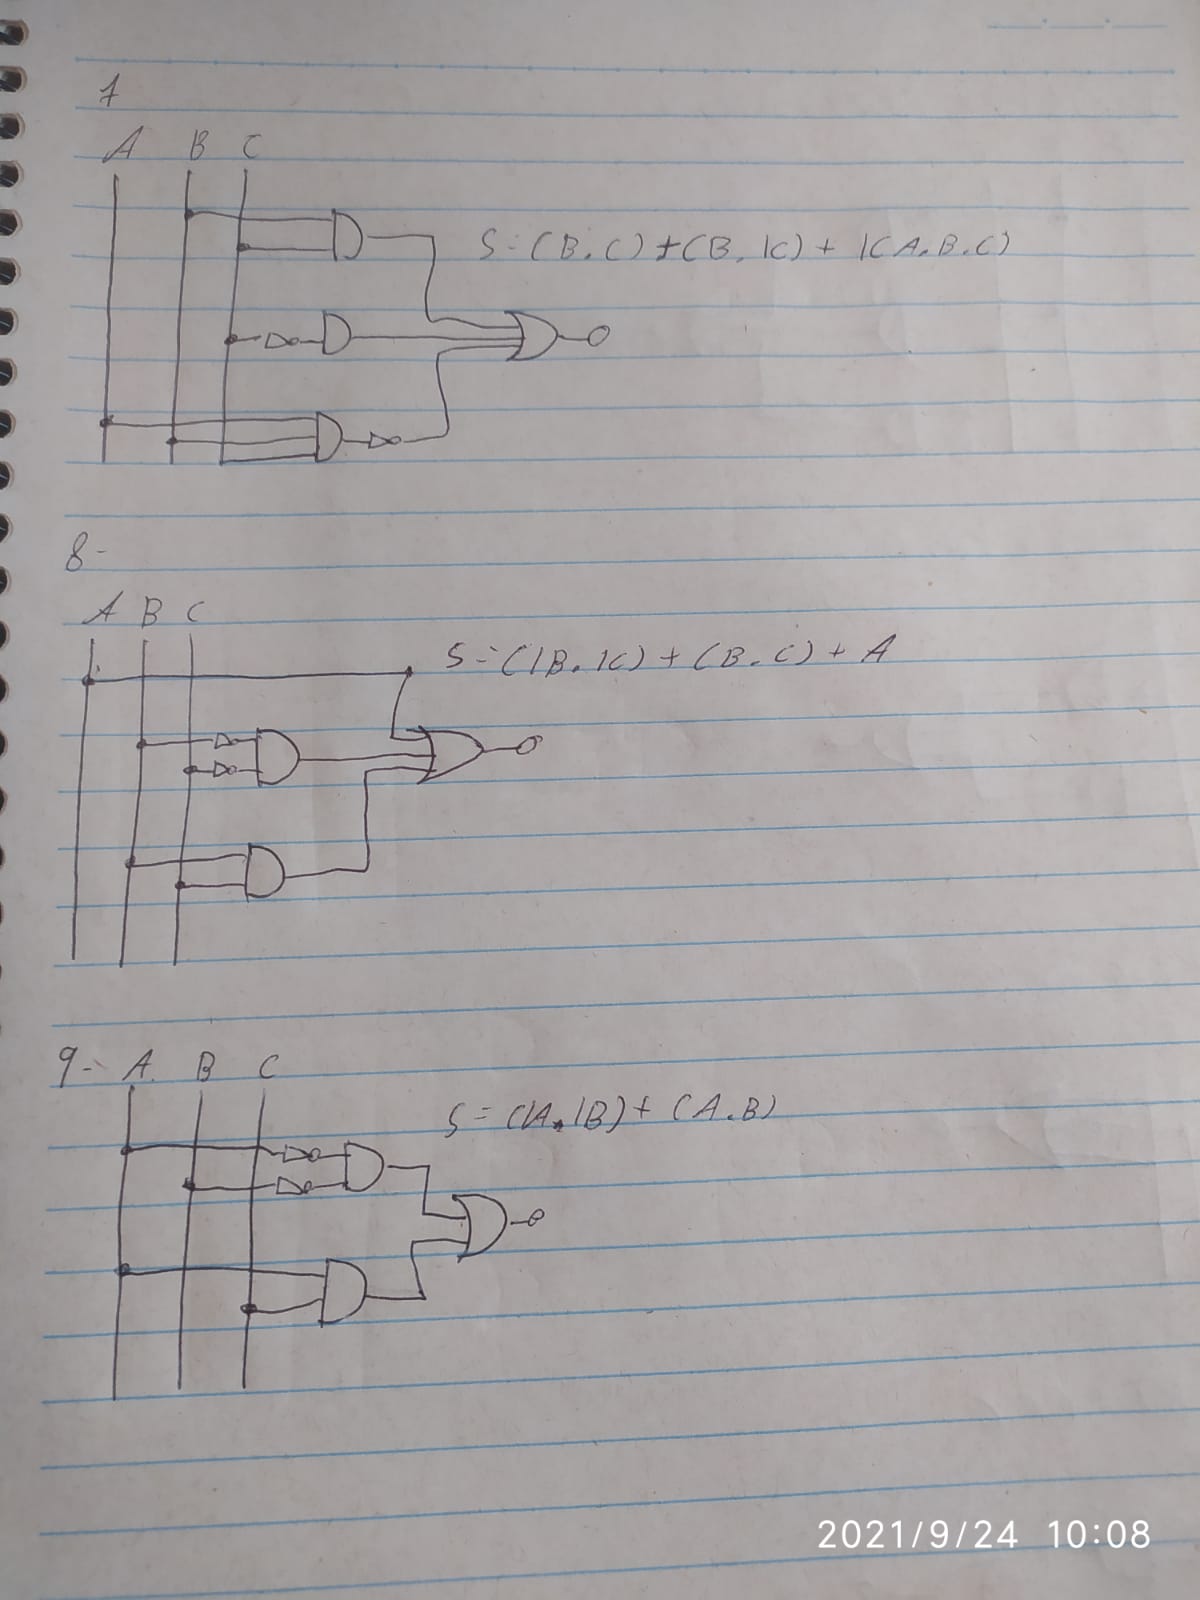 7
A B C
S=(B.C)+(B.|C)+|(A.B.C)
8-
A B C
S=(|B.|C)+(B.C)+A
9- A B C
S=(|A.|B)+(A.B)
2021/9/24 10:08